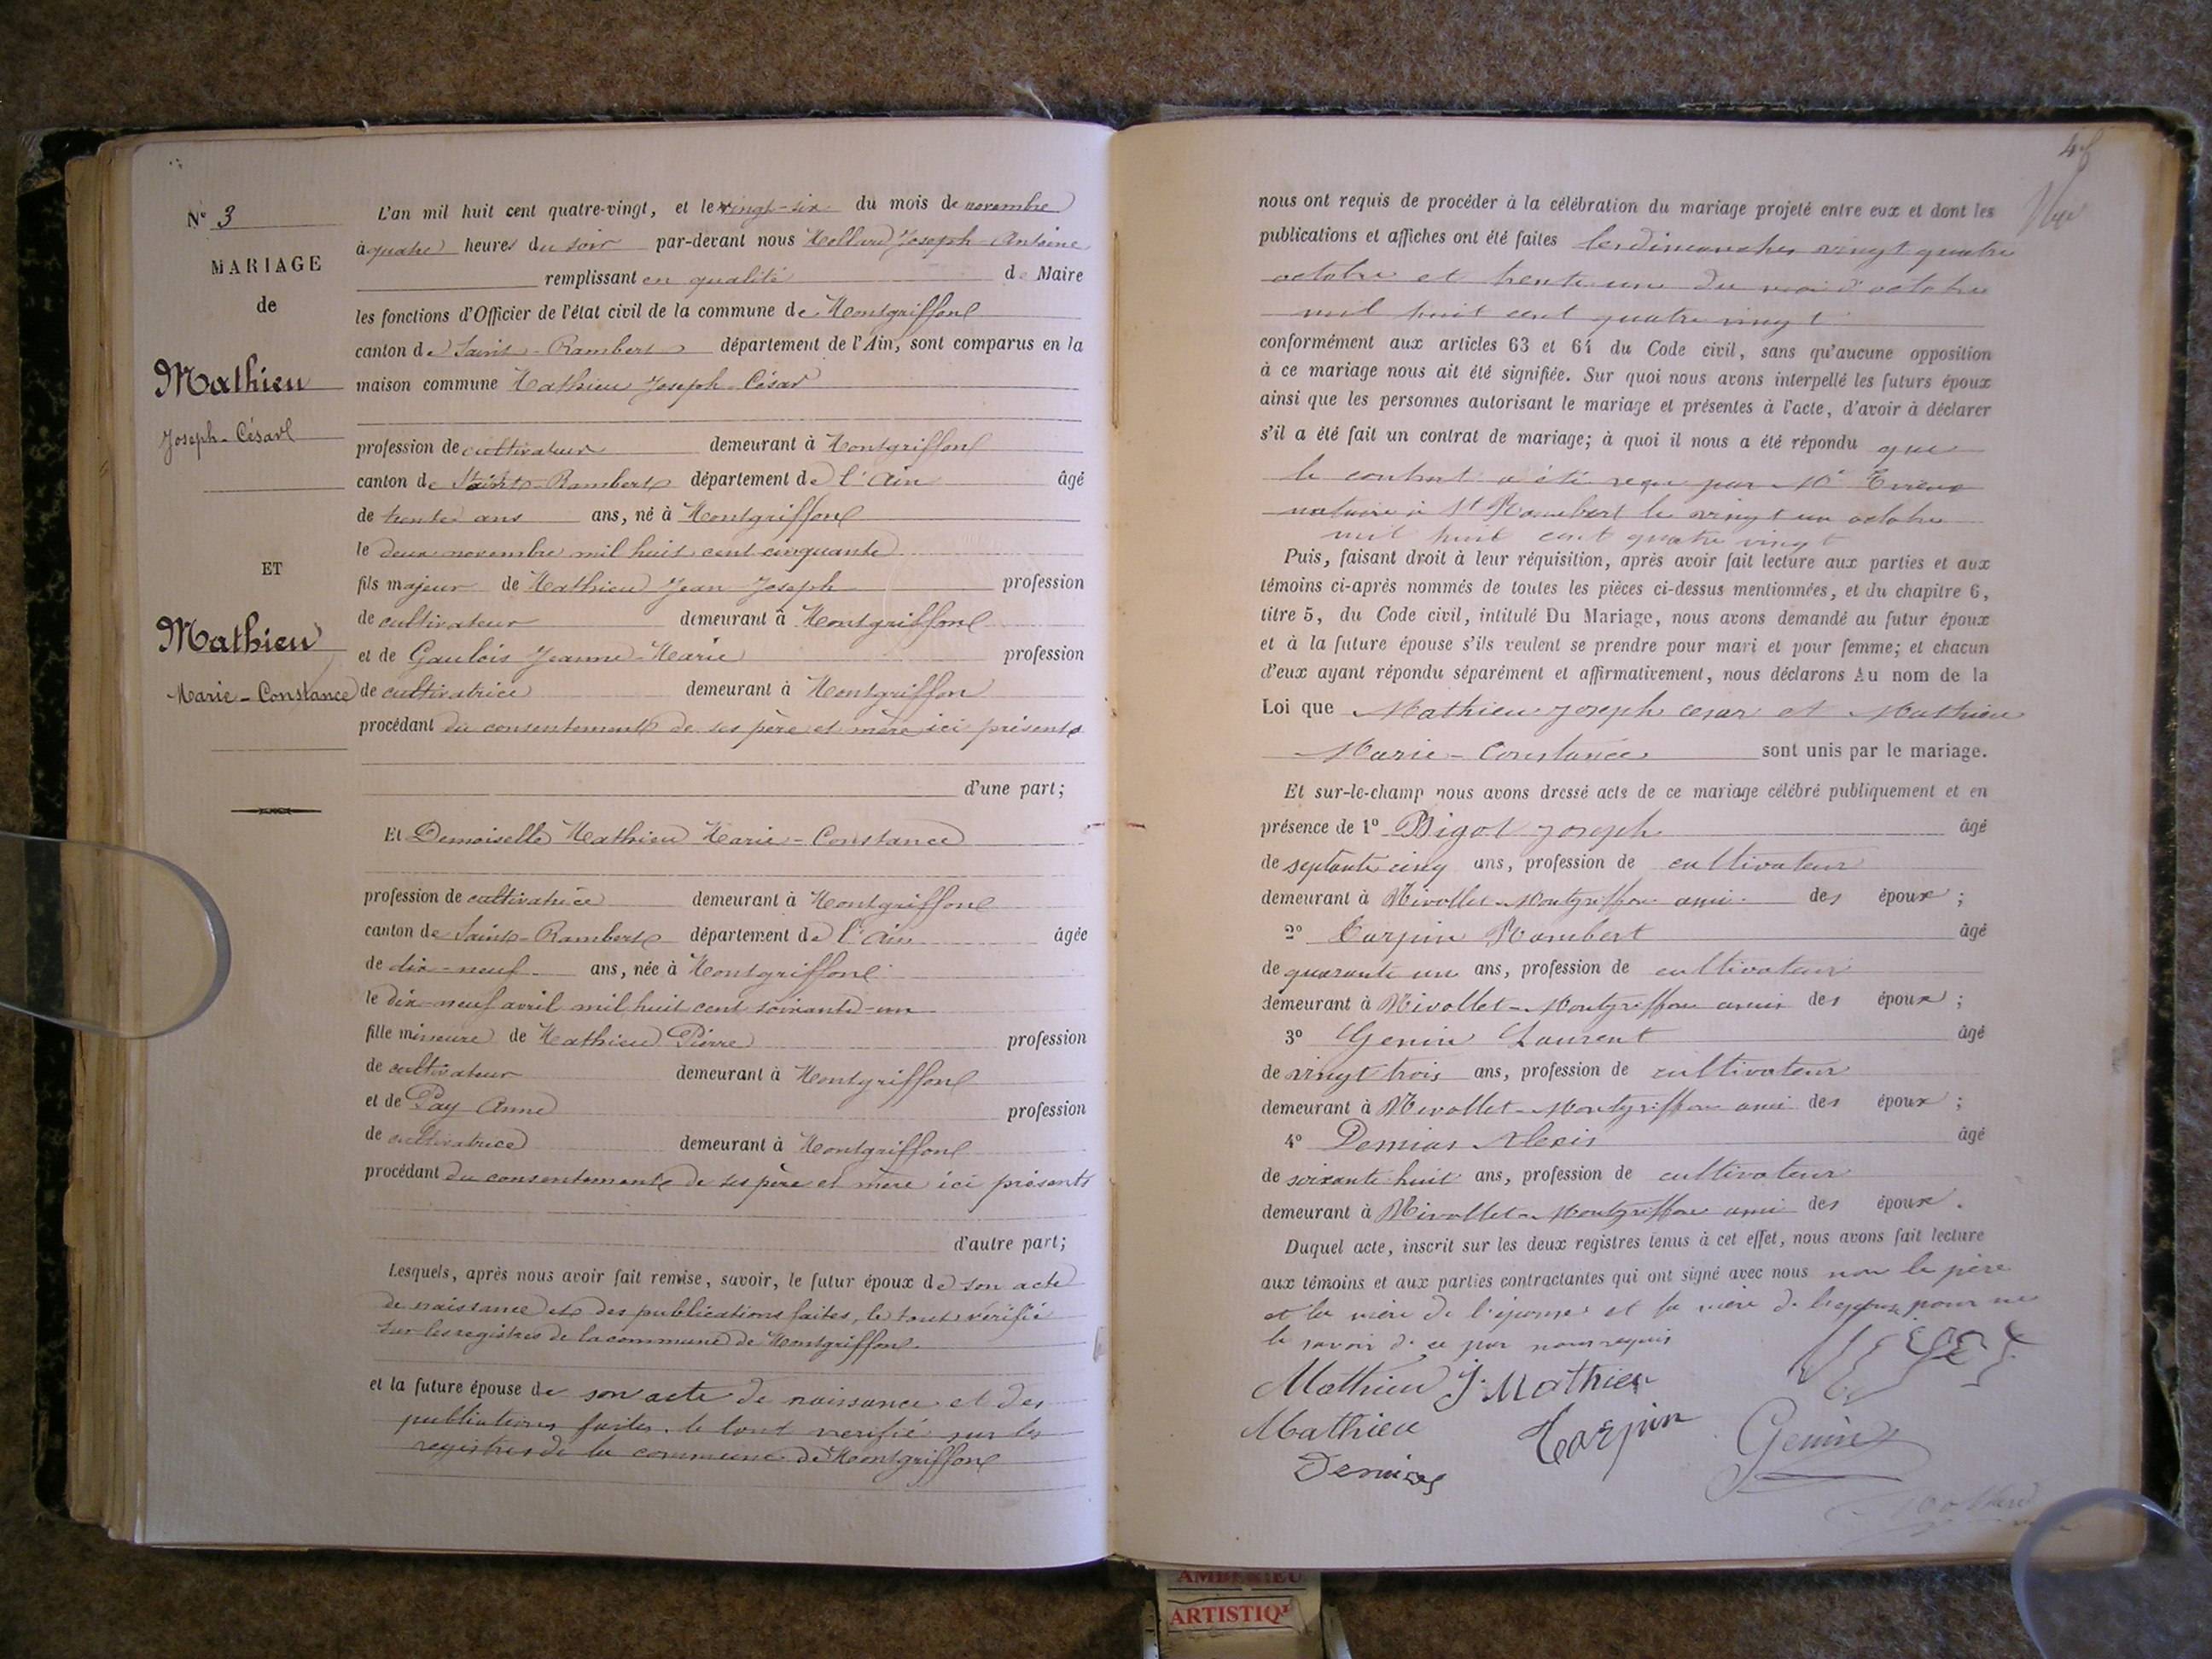 N° 3
MARIAGE
de
Mathieu
Joseph-César
ET
Mathieu
Marie-Constance
L'an mil huit cent quatre-vingt, et le vingt-six du mois de novembre
à quatre heures du soir par-devant nous Joseph-Antoine
remplissant en qualité de Maire
les fonctions d'Officier de l'état civil de la commune de Montgriffon
canton de Saint-Rambert département de l'Ain, sont comparus en la
maison commune Mathieu Joseph-César
profession de cultivateur demeurant à Montgriffon
canton de Saint-Rambert département de l'Ain âgé
de trente ans ans, né à Montgriffon
le deux novembre mil huit cent cinquante
fils majeur de Mathieu Jean-Joseph profession
de cultivateur demeurant à Montgriffon
et de Gaulois Jeanne-Marie profession
de cultivatrice demeurant à Montgriffon
procédant du consentement de ses père et mère ici présents
d'une part;
Et Demoiselle Mathieu Marie-Constance
profession de cultivatrice demeurant à Montgriffon
canton de Saint-Rambert département de l'Ain âgée
de dix-neuf ans, née à Montgriffon
le dix-neuf avril mil huit cent soixante-un
fille mineure de Mathieu Pierre profession
de cultivateur demeurant à Montgriffon
et de Pay Anne profession
de cultivatrice demeurant à Montgriffon
procédant du consentement de ses père et mère ici présents
d'autre part;
Lesquels, après nous avoir fait remise, savoir, le futur époux de son acte
de naissance et des publications faites, le tout vérifié
sur les registres de la commune de Montgriffon.
et la future épouse de son acte de naissance et des
publications faites. le tout verifié sur les
registres de la commune de Montgriffon
48
Vu
nous ont requis de procéder à la célébration du mariage projeté entre eux et dont les
publications et affiches ont été faites les dimanches vingt quatre
octobre et trente un du mois d'octobre
mil huit cent quatre vingt
conformément aux articles 63 et 64 du Code civil, sans qu'aucune opposition
à ce mariage nous ait été signifiée. Sur quoi nous avons interpellé les futurs époux
ainsi que les personnes autorisant le mariage et présentes à l'acte, d'avoir à déclarer
s'il a été fait un contrat de mariage; à quoi il nous a été répondu que
le contrat a été reçu par Me
notaire à St Rambert le vingt un octobre
mil huit cent quatre vingt
Puis, faisant droit à leur réquisition, après avoir fait lecture aux parties et aux
témoins ci-après nommés de toutes les pièces ci-dessus mentionnées, et du chapitre 6,
titre 5, du Code civil, intitulé Du Mariage, nous avons demandé au futur époux
et à la future épouse s'ils veulent se prendre pour mari et pour femme; et chacun
d'eux ayant répondu séparément et affirmativement, nous déclarons Au nom de la
Loi que Mathieu Joseph cesar et Mathieu
Marie-Constance sont unis par le mariage.
Et sur-le-champ nous avons dressé acte de ce mariage célébré publiquement et en
présence de 1° Joseph âgé
de septante cinq ans, profession de cultivateur
demeurant à Nivollet-Montgriffon ami des époux;
2° Tarpin Rambert âgé
de quarante un ans, profession de cultivateur
demeurant à Nivollet-Montgriffon ami des époux;
3° Genin Laurent âgé
de vingt trois ans, profession de cultivateur
demeurant à Nivollet-Montgriffon ami des époux;
4° Demias Alexis âgé
de soixante huit ans, profession de cultivateur
demeurant à Nivollet-Montgriffon ami des époux.
Duquel acte, inscrit sur les deux registres tenus à cet effet, nous avons fait lecture
aux témoins et aux parties contractantes qui ont signé avec nous non le père
et la mère de l'épouse et la mère de l'époux pour ne
le savoir de ce par nous requis
Mathieu J. Mathieu
Mathieu Tarpin Genin
Demias
AMBERIEU
ARTISTIQ